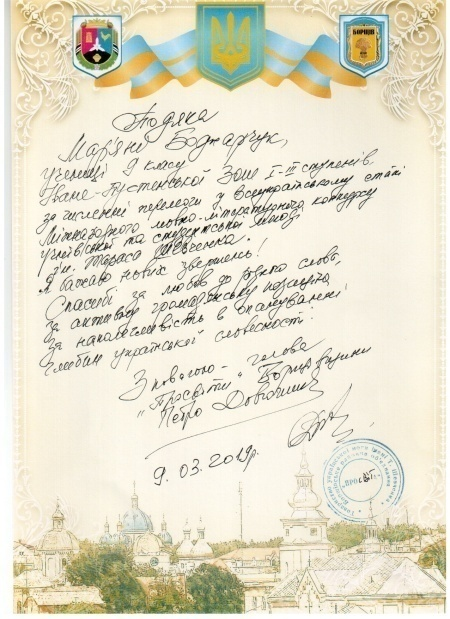 БОРЩІВ
Подяка
Мар'яні Боднарчук,
учениці 9 класу
Іване-Пустенської ЗОШ І-ІІІ ступенів
за численні перемоги у Всеукраїнському етапі
Міжнародного мовно-літературного конкурсу
учнівської та студентської молоді
ім. Тараса Шевченка.
Я бажаю нових звершень!
Спасибі за любов до рідного слова,
за активну громадянську позицію,
за наполегливість в опануванні
глибин української словесності!
З повагою - голова
"Просвіти" Борщівщини
Петро Довгошия
9.03.2019р.
"ПРОСВІТА"